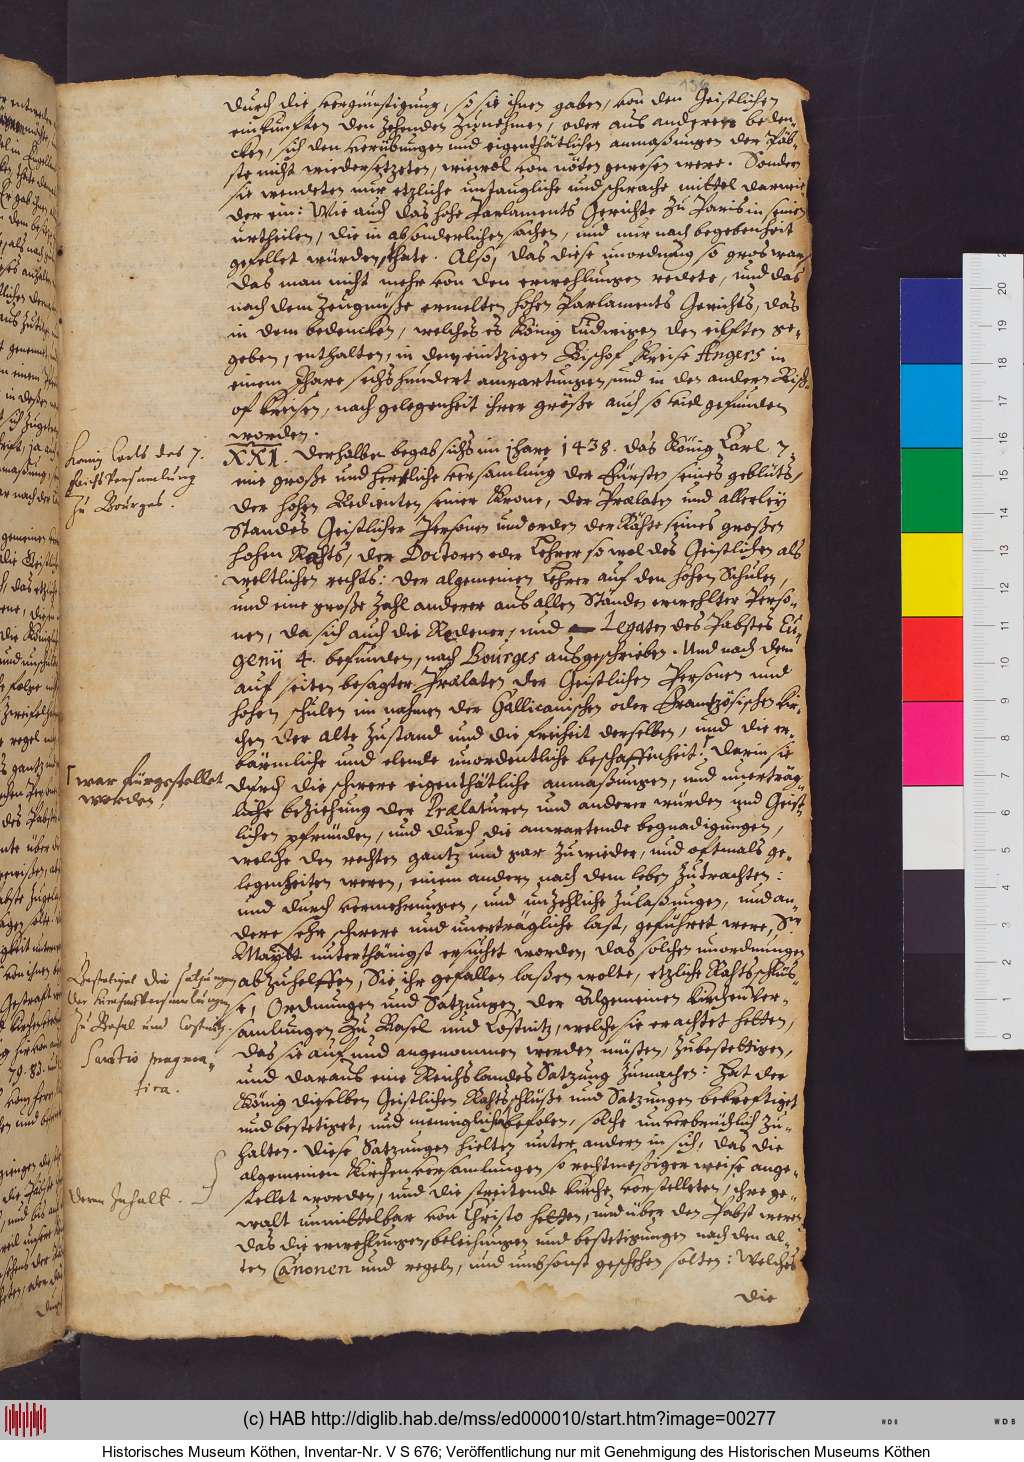 durch die vergünstigung, so sie ihnen gaben, von den Geistlichen
einkunften den zehenden zunehmen, oder aus anderen beden-
cken, sich den verübungen und eigenthätlichen anmaßungen der Päb-
ste nicht wiedersetzeten, wiewol von nöten gewesen were. Sondern
sie wendeten nur etzliche untaugliche und schwache mittel darwie-
der ein: Wie auch das hohe Parlaments Gerichte zu Paris in seinen
urtheilen, die in absonderlichen sachen, und nur nach begebenheit
gefellet würden, thate. Also, das diese unordnung so gros war,
das man nicht mehr von den erwehlungen redete, und das
nach dem Zeugnüße ermelten hohen Parlaments Gerichts, das
in dem bedencken, welches es König Ludwigen den eilften ge-
geben, enthalten, in dem eintzigen Bischof Kreise Angers in
einem Jhare sechshundert anwartungen, und in den andern Bisch-
of kreisen, nach gelegenheit ihrer größe auch so viel gefunden
worden.
König Carls des 7.
Reichsversamlung
zu Bourges.
XXI. Derhalben begab sichs im Jhare 1438. das König Carl 7.
eine große und herrliche versamlung der Fürsten seines geblüts,
der hohen Bedienten seiner Krone, der Prælaten und allerley
Standes Geistlicher Personen und orden der Rähte seines großen
hohen Rahts, der Doctoren oder Lehrer so wol des Geistlichen als
weltlichen rechts: der algemeinen Lehrer auf den hohen Schulen,
und eine große zahl anderer aus allen Ständen erwehlter Perso-
nen, da sich auch die Redener, und Legaten des Pabstes Eu-
genii 4. befunden, nach Bourges ausgeschrieben. Und nach dem
auf seiten besagter Prælaten der Geistlichen Personen und
hohen schulen im nahmen der Gallicanischen oder Frantzösischen Kir-
chen der alte zustand und die freiheit derselben, und die er-
bärmliche und elende unordentliche beschaffenheit, darin sie
war fürgestellet
worden
durch die schwere eigenthätliche anmaßungen, und unerträg-
liche beziehung der Prælaturen und anderer würden und Geist-
lichen pfründen, und durch die anwartende begnadigungen,
welche den rechten gantz und gar zuwieder, und oftmals ge-
legenheiten weren, einem andern nach dem leben zutrachten:
und durch vermehrungen, und unzehliche zulaßungen, und an-
dere sehr schwere und unerträgliche last, geführet were, Sr
Maytt unterthänigst ersucht worden, das solchen unordnungen
Bestetiget die satzungen
der kirchenversamlungen
zu Basel und Costnitz.
abzuhelffen, Sie ihr gefallen laßen wolte, etzliche Rahtsschlüs-
se, Ordnungen und Satzungen der Algemeinen kirchen ver-
samlungen zu Basel und Costnitz, welche sie erachtet hetten,
Sanctio pragma-
tica.
das sie auf und angenommen werden müsten, zubestetigen,
und daraus eine Reichslandes Satzung zumachen: hat der
König dieselben Geistlichen Rahtsschlüße und Satzungen bekreftiget
und bestetiget, und männiglich befolen, solche unverbrüchlich zu-
halten. Diese Satzungen hielten unter andern in sich, das die
deren Inhalt.
algemeinen Kirchenversamlungen so rechtmeßiger weise ange-
stellet worden, und die streitende kirche vorstelleten, ihre ge-
walt unmittelbar von Christo hetten, und über den Pabst weren
das die erwehlungen, beleihungen und bestetigungen nach den al-
ten Canonen und regeln, und umsonst geschehen solten: Welches
die
(c) HAB http://diglib.hab.de/mss/ed000010/start.htm?image=00277
Historisches Museum Köthen, Inventar-Nr. V S 676; Veröffentlichung nur mit Genehmigung des Historischen Museums Köthen